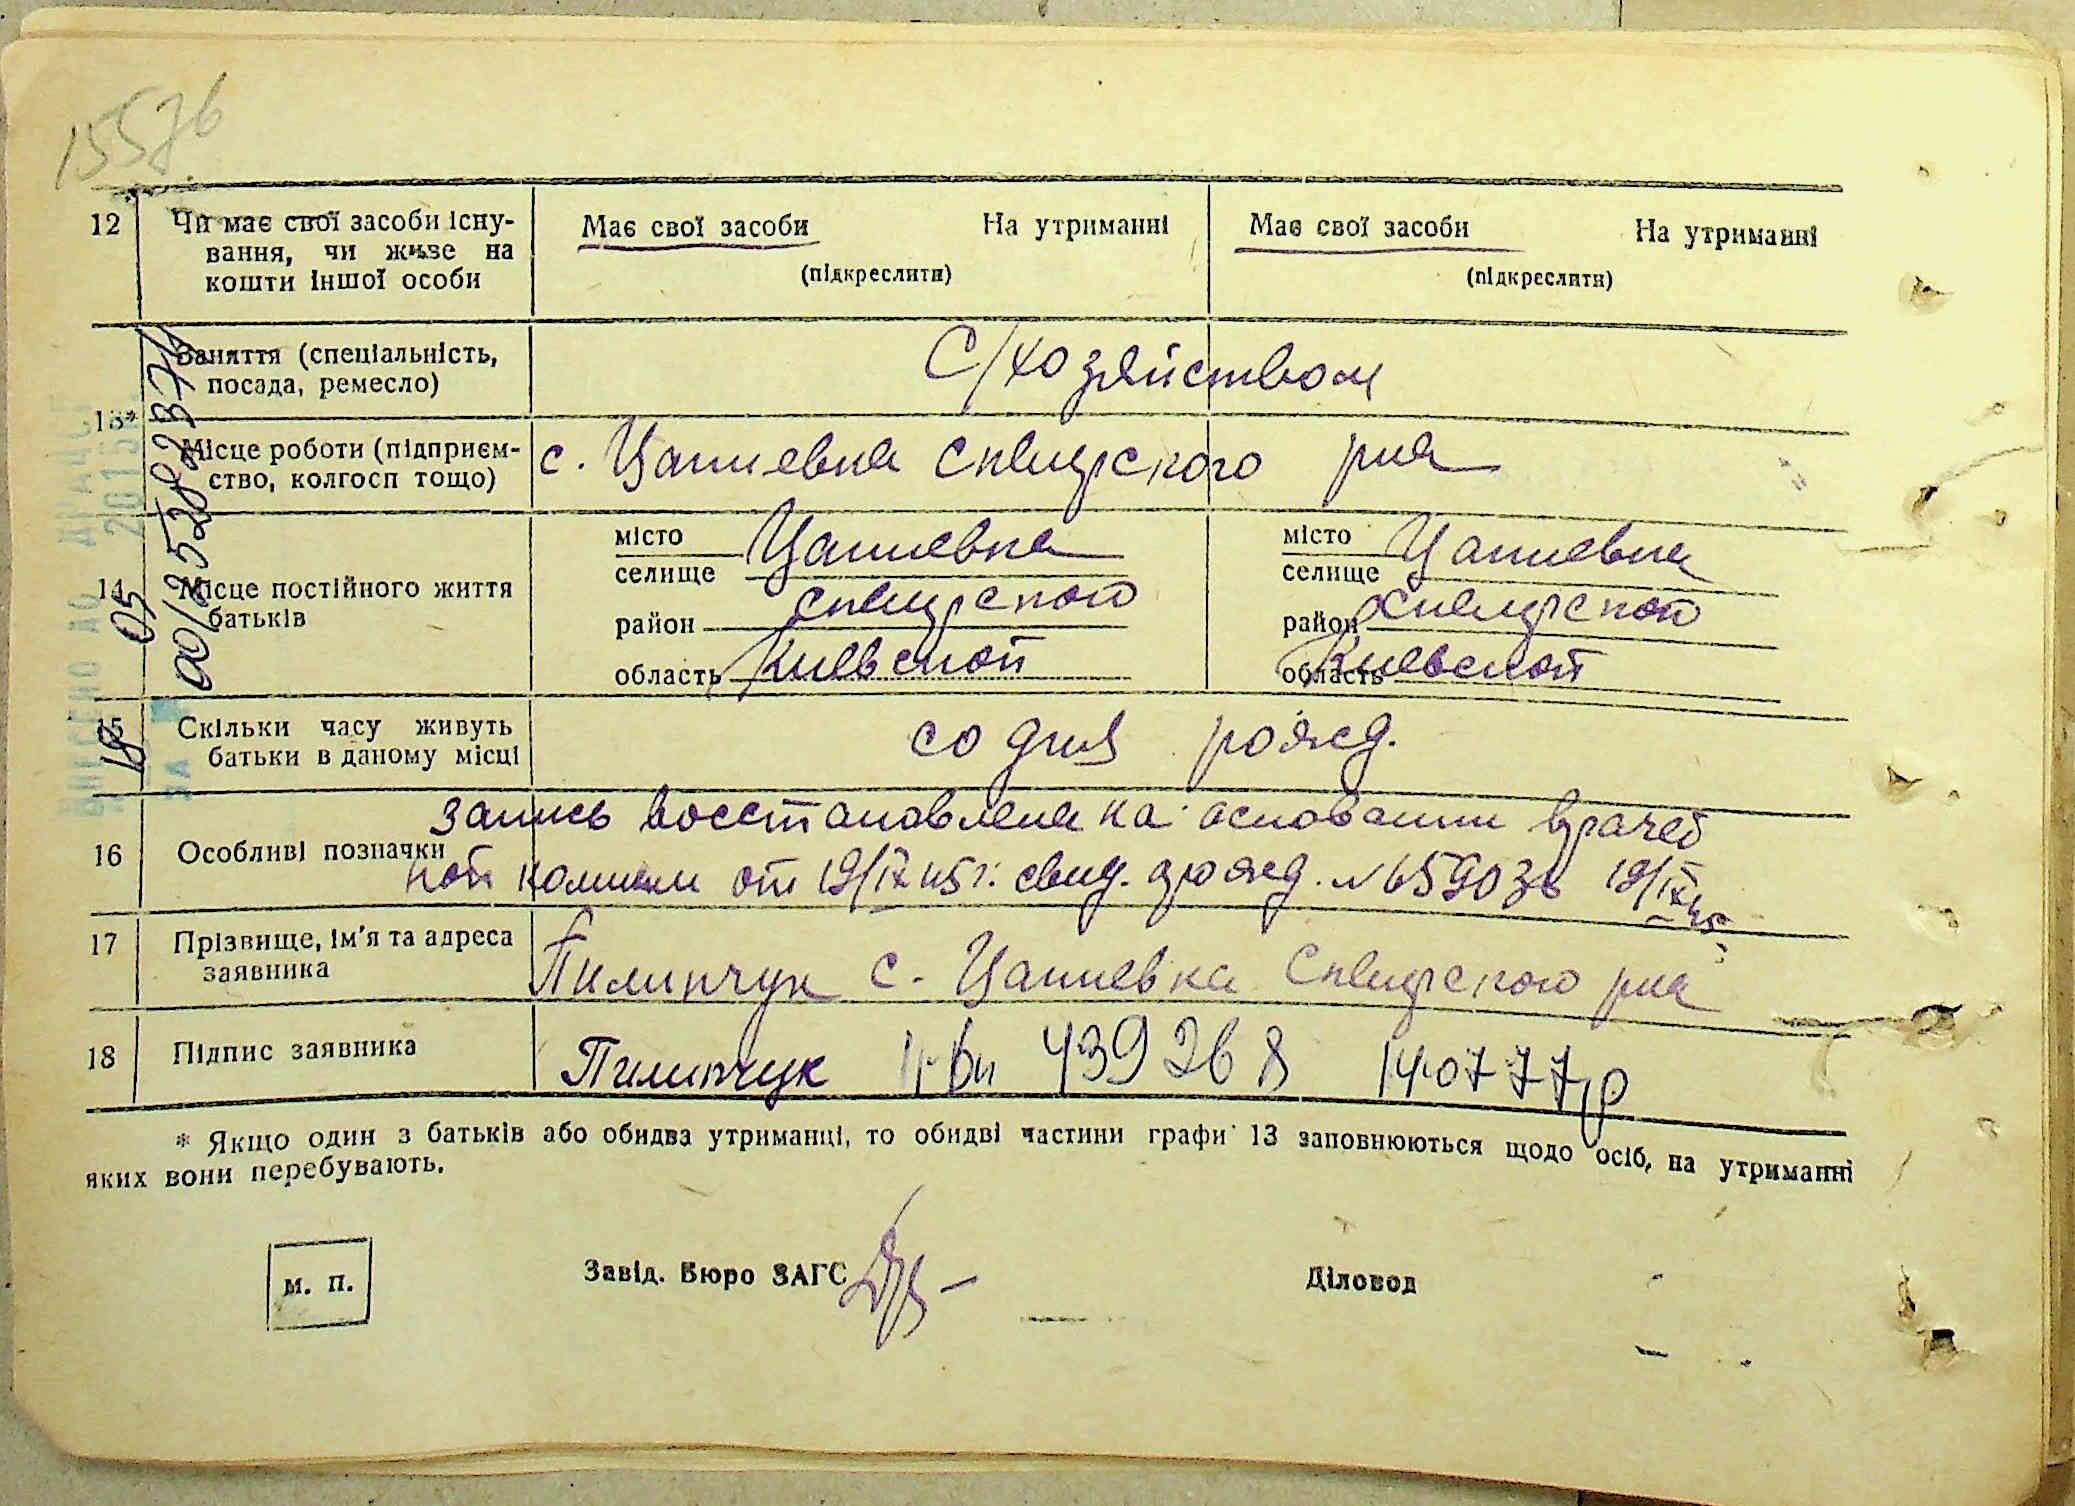 15576
12 Чи має свої засоби існу- Має свої засоби На утриманні Має свої засоби На утриманні
вання, чи живе на
кошти іншої особи (підкреслити) (підкреслити)
Заняття (спеціальність, С/хозяйством
посада, ремесло)
13*
Місце роботи (підприєм- с. Цапиевка Сквирского р-на
ство, колгосп тощо)
місто Цапиевка місто Цапиевка
селище селище
14 Місце постійного життя район Сквирского район Сквирского
батьків
область Киевской область Киевской
15 Скільки часу живуть со дня рожд.
батьки в даному місці
запись восстановлена на основании врачеб
16 Особливі позначки
ной комиссии от 19/IX 45 г. свид. о рожд. № 659036 19/IX 45
17 Прізвище, ім'я та адреса Пилипчук с. Цапиевка Сквирского р-на
заявника
18 Підпис заявника Пилипчук 439268 140777р
* Якщо один з батьків або обидва утриманці, то обидві частини графи 13 заповнюються щодо осіб, на утриманні
яких вони перебувають.
м. п. Завід. Бюро ЗАГС Діловод
00125282371
18 05